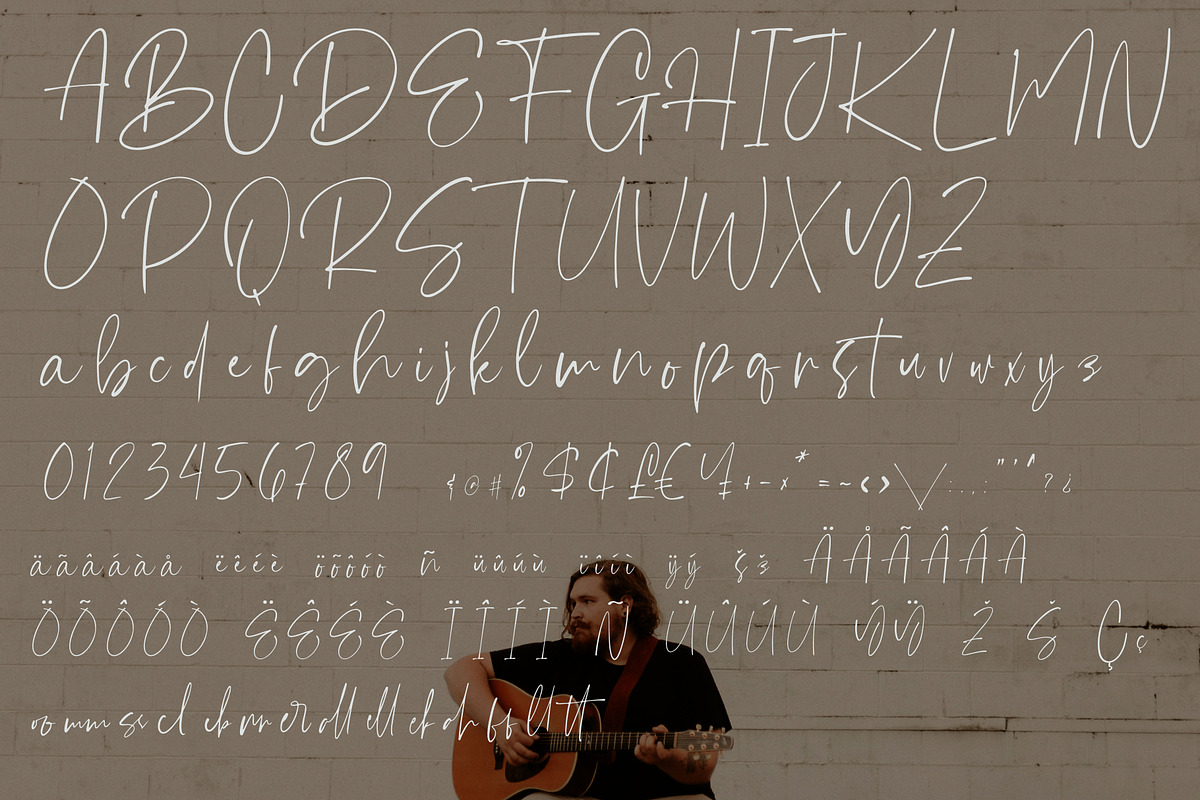 ABCDEFGHIJKLMN
OPQRSTUVWXYZ
abcdefghijklmnopqrstuvwxyz
0123456789 &@#%$¢£€¥+-×*=~<>\/:.,; "'^?¿
äãâáàå ëêéè öõôóò ñ üûúù ïîíì ÿý šž ÄÅÃÂÁÀ
ÖÕÔÓÒ ËÊÉÈ ÏÎÍÌ Ñ ÜÛÚÙ ÝŸ Ž Š Çç
oo mm ss cl ck rr er oll ell ef oh ff lt tt